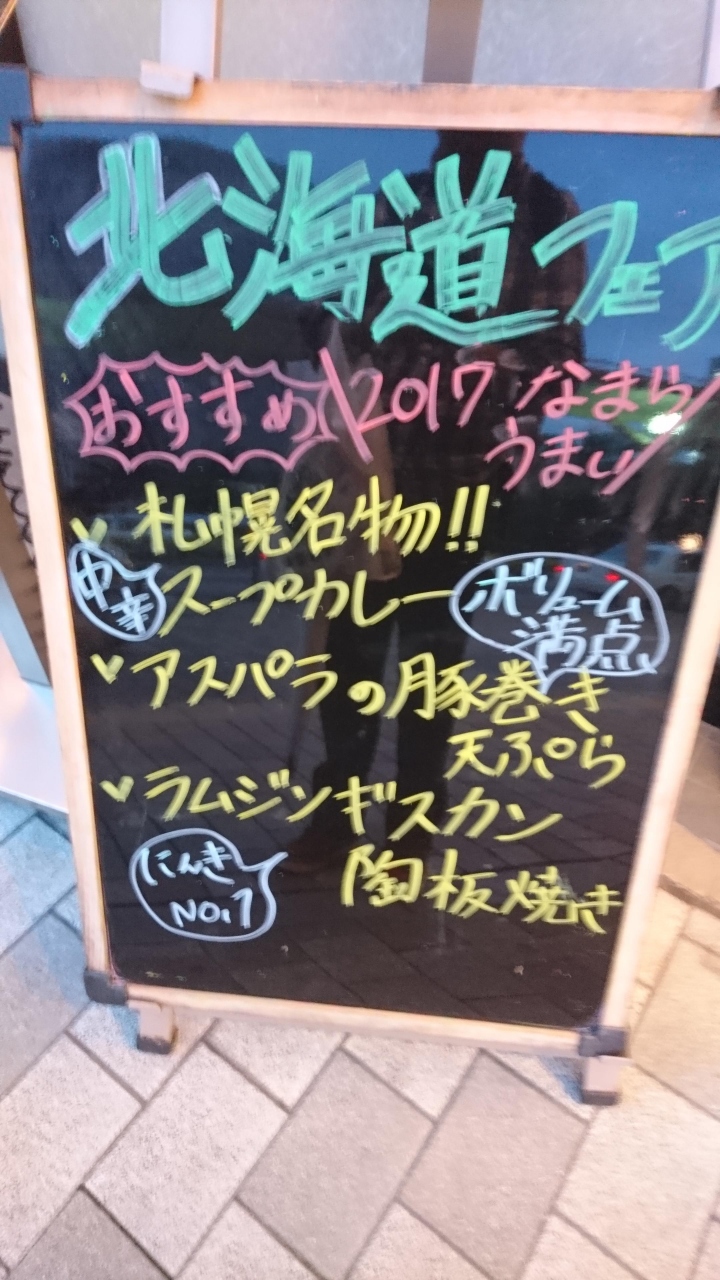 北海道フェア
おすすめ 2017 なまら
うまい
札幌名物!!
中辛 スープカレー ボリューム
満点
アスパラの豚巻き
天ぷら
ラムジンギスカン
にんき
NO.1
陶板焼き